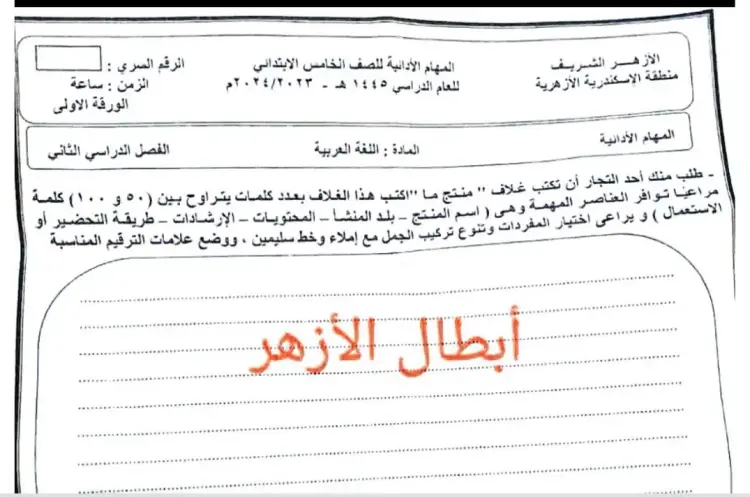 الأزهـر الشـريـف
منطقة الإسكندرية الأزهرية
المهام الأدائية للصف الخامس الابتدائي
للعام الدراسي ١٤٤٥ هـ - ٢٠٢٤/٢٠٢٣م
الرقم السري :
الزمن : ساعة
الورقة الاولى
المهام الأدائية
المادة : اللغة العربية
الفصل الدراسي الثاني
- طلب منك أحد التجار أن تكتب غلاف " منتج ما "اكتب هذا الغلاف بعدد كلمات يتراوح بين (٥٠ و ١٠٠) كلمة
مراعيًا توافر العناصر المهمة وهي ( اسم المنتج – بلد المنشأ – المحتويات – الإرشادات – طريقة التحضير أو
الاستعمال ) و يراعى اختيار المفردات وتنوع تركيب الجمل مع إملاء وخط سليمين ، ووضع علامات الترقيم المناسبة
أبطال الأزهر